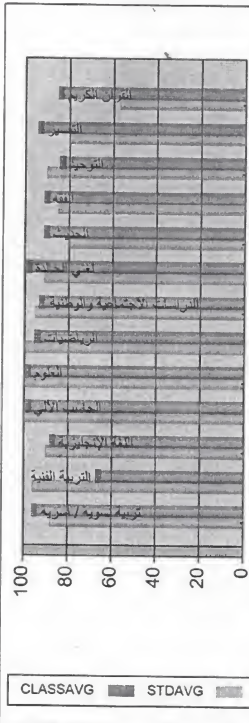 القرآن الكريم
التفسير
التوحيد
الفقه
الحديث
الدراسات الاجتماعية والوطنية
الرياضيات
العلوم
الحاسب الآلي
اللغة الإنجليزية
التربية الفنية
تربية نسويه / أسريه
100
80
60
40
20
0
CLASSAVG
STDAVG